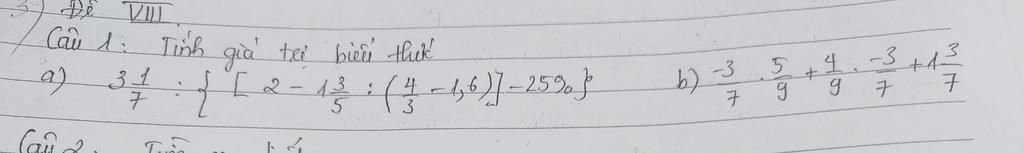 3) Đề VIII.
Câu 1: Tính giá trị biểu thức
a) 3 1/7 : { [ 2 - 1 3/5 : ( 4/3 - 1,6 ) ] - 25% }   b) -3/7 . 5/9 + 4/9 . -3/7 + 1 3/7
Câu 2: